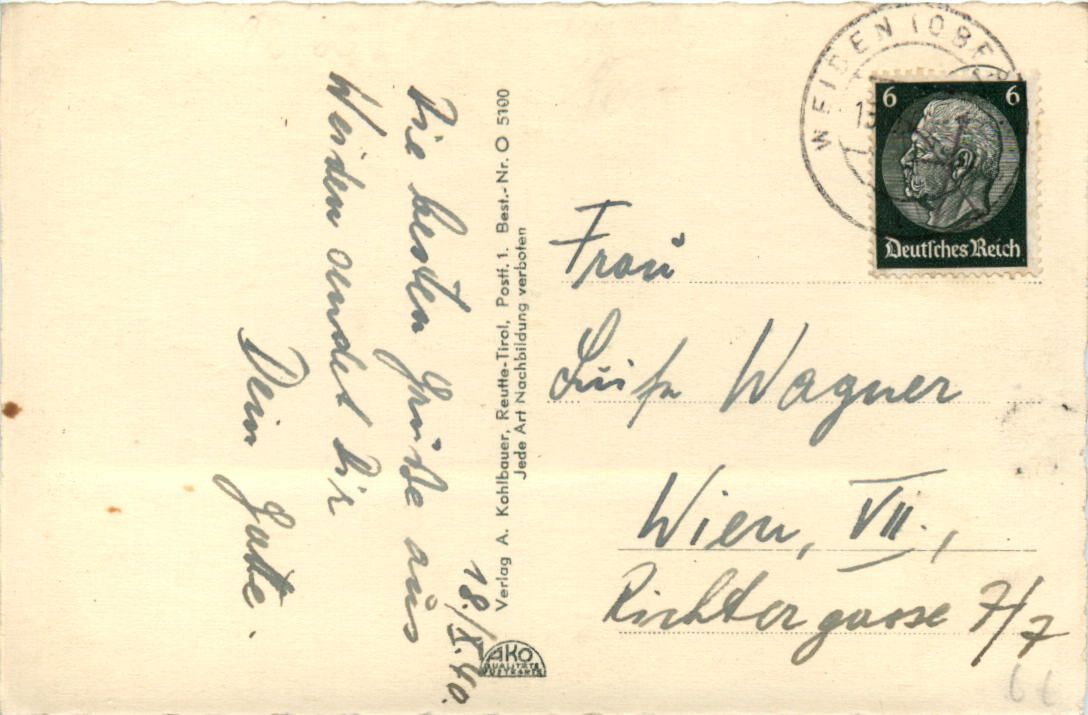 18./X.40.
Die besten Grüße aus
Weiden sendet Dir
Dein Gatte.
Verlag A. Kohlbauer, Reutte-Tirol, Postf. 1. Best.-Nr. O 5100
Jede Art Nachbildung verboten
AKO
QUALITÄTS
POSTKARTE
WEIDEN (OBER
6 6
Deutsches Reich
Frau
Luise Wagner
Wien, VII.,
Richtergasse 7/7